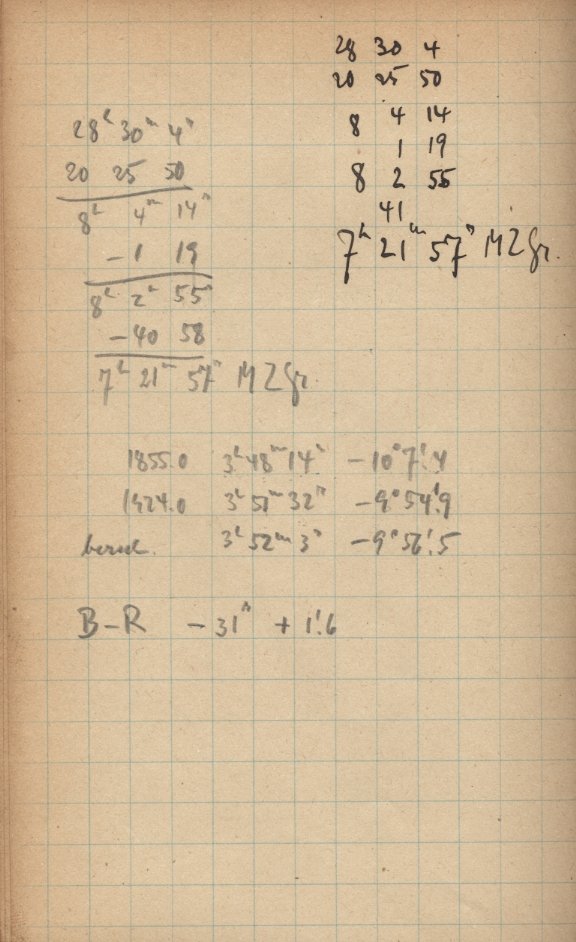 28 30 4
20 25 50
8 4 14
1 19
8 2 55
41
7ʰ 21ᵐ 57ˢ MZGr.
28ʰ 30ᵐ 4ˢ
20 25 50
8ʰ 4ᵐ 14ˢ
-1 19
8ʰ 2ᵐ 55ˢ
-40 58
7ʰ 21ᵐ 57ˢ MZGr.
1855.0 3ʰ 48ᵐ 14ˢ -10° 7'.4
1924.0 3ʰ 51ᵐ 32ˢ -9° 54'.9
berech. 3ʰ 52ᵐ 3ˢ -9° 56'.5
B-R -31ˢ + 1'.6